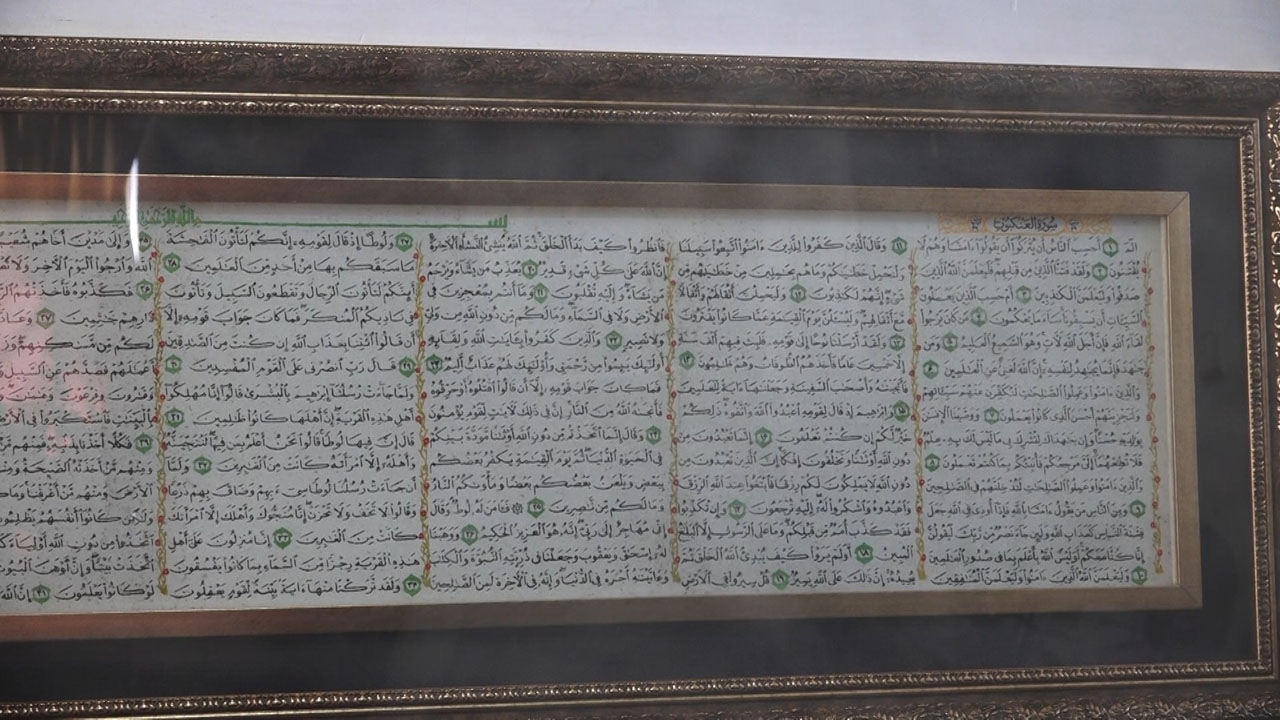 سورة العنكبوت
الم ١ أحسب الناس أن يتركوا أن يقولوا ءامنا وهم لا
يفتنون ٢ ولقد فتنا الذين من قبلهم فليعلمن الله الذين
صدقوا وليعلمن الكذبين ٣ أم حسب الذين يعملون
السيئات أن يسبقونا ساء ما يحكمون ٤ من كان يرجوا
لقاء الله فإن أجل الله لآت وهو السميع العليم ٥ ومن
جهد فإنما يجهد لنفسه إن الله لغني عن العلمين ٦
والذين ءامنوا وعملوا الصلحت لنكفرن عنهم سيئاتهم
ولنجزينهم أحسن الذي كانوا يعملون ٧ ووصينا الإنسن
بولديه حسنا وإن جهداك لتشرك بي ما ليس لك به علم
فلا تطعهما إلي مرجعكم فأنبئكم بما كنتم تعملون ٨
والذين ءامنوا وعملوا الصلحت لندخلنهم في الصلحين
٩ ومن الناس من يقول ءامنا بالله فإذا أوذي في الله جعل
فتنة الناس كعذاب الله ولئن جاء نصر من ربك ليقولن
إنا كنا معكم أوليس الله بأعلم بما في صدور العلمين
١٠ وليعلمن الله الذين ءامنوا وليعلمن المنفقين
١١ وقال الذين كفروا للذين ءامنوا اتبعوا سبيلنا
ولنحمل خطيكم وما هم بحملين من خطيهم من
شيء إنهم لكذبون ١٢ وليحملن أثقالهم وأثقالا
مع أثقالهم وليسئلن يوم القيمة عما كانوا يفترون
١٣ ولقد أرسلنا نوحا إلى قومه فلبث فيهم ألف سنة
إلا خمسين عاما فأخذهم الطوفان وهم ظلمون ١٤
فأنجينه وأصحب السفينة وجعلنها ءاية للعلمين
١٥ وإبرهيم إذ قال لقومه اعبدوا الله واتقوه ذلكم
خير لكم إن كنتم تعلمون ١٦ إنما تعبدون من
دون الله أوثنا وتخلقون إفكا إن الذين تعبدون من
دون الله لا يملكون لكم رزقا فابتغوا عند الله الرزق
واعبدوه واشكروا له إليه ترجعون ١٧ وإن تكذبوا
فقد كذب أمم من قبلكم وما على الرسول إلا البلغ
المبين ١٨ أولم يروا كيف يبدئ الله الخلق ثم
يعيده إن ذلك على الله يسير ١٩ قل سيروا في الأرض
فانظروا كيف بدأ الخلق ثم الله ينشئ النشأة الأخرة
إن الله على كل شيء قدير ٢٠ يعذب من يشاء ويرحم
من يشاء وإليه تقلبون ٢١ وما أنتم بمعجزين في
الأرض ولا في السماء وما لكم من دون الله من ولي
ولا نصير ٢٢ والذين كفروا بءايت الله ولقائه
أولئك يئسوا من رحمتي وأولئك لهم عذاب أليم ٢٣
فما كان جواب قومه إلا أن قالوا اقتلوه أو حرقوه
فأنجىه الله من النار إن في ذلك لأيت لقوم يؤمنون
٢٤ وقال إنما اتخذتم من دون الله أوثنا مودة بينكم
في الحيوة الدنيا ثم يوم القيمة يكفر بعضكم
ببعض ويلعن بعضكم بعضا ومأوىكم النار
وما لكم من نصرين ٢٥ ۞ فءامن له لوط وقال
إني مهاجر إلى ربي إنه هو العزيز الحكيم ٢٦ ووهبنا
له إسحق ويعقوب وجعلنا في ذريته النبوة والكتب
وءاتينه أجره في الدنيا وإنه في الأخرة لمن الصلحين
٢٧ ولوطا إذ قال لقومه إنكم لتأتون الفحشة
ما سبقكم بها من أحد من العلمين ٢٨
أئنكم لتأتون الرجال وتقطعون السبيل وتأتون
في ناديكم المنكر فما كان جواب قومه إلا
أن قالوا ائتنا بعذاب الله إن كنت من الصدقين
٢٩ قال رب انصرني على القوم المفسدين ٣٠
ولما جاءت رسلنا إبرهيم بالبشرى قالوا إنا مهلكوا
أهل هذه القرية إن أهلها كانوا ظلمين ٣١
قال إن فيها لوطا قالوا نحن أعلم بمن فيها لننجينه
وأهله إلا امرأته كانت من الغبرين ٣٢ ولما
أن جاءت رسلنا لوطا سيء بهم وضاق بهم ذرعا
وقالوا لا تخف ولا تحزن إنا منجوك وأهلك إلا امرأتك
كانت من الغبرين ٣٣ إنا منزلون على أهل
هذه القرية رجزا من السماء بما كانوا يفسقون
٣٤ ولقد تركنا منها ءاية بينة لقوم يعقلون
٣٥ وإلى مدين أخاهم شعيبا
الله وارجوا اليوم الأخر ولا
٣٦ فكذبوه فأخذتهم
دارهم جثمين ٣٧ وعادا
لكم من مسكنهم
أعملهم فصدهم عن السبيل
وقرون وفرعون وهمن
بالبينت فاستكبروا في الأرض
٣٩ فكلا أخذنا بذنبه فمنهم من
ومنهم من أخذته الصيحة ومنهم
الأرض ومنهم من أغرقنا وما كان
ولكن كانوا أنفسهم يظلمون
اتخذوا من دون الله أولياء
اتخذت بيتا وإن أوهن البيوت
لو كانوا يعلمون ٤١ إن الله